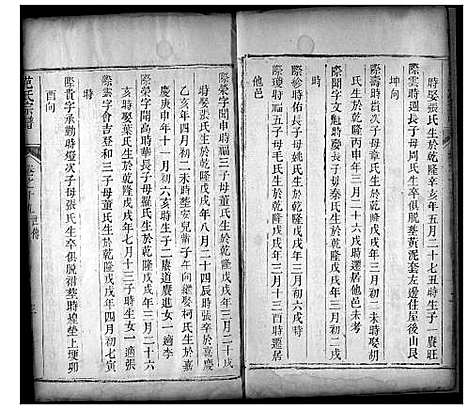 時娶張氏生於乾隆辛亥年五月二十七丑時生子一廣旺
際雲時昌子母周氏生卒俱脫塟黃泥套左邊住屋後山艮
坤向
際壽時損次子母王氏生於乾隆戊戌年三月初二未時娶胡
氏生於乾隆丙申年三月二十六戌時遷居他邑未考
際聞字文魁時慶長子母秦氏生於乾隆戊戌年三月初二戌
時
際發時佑長子母姚氏生於乾隆戊戌年三月初六戌時
際瓊時福五子母毛氏生於乾隆戊戌年三月十三酉時遷居
他邑
際榮字聞申時福三子母董氏生於乾隆戊戌年三月二十戌
時娶張氏生於乾隆戊戌年八月二十四辰時張卒於嘉慶
乙亥年四月初二未時塟安兒衝子向繼娶柯氏生於嘉
慶庚申年十一月初六亥時生子二廣道廣進女一適李
際榮字開高時華長子母羅氏生於乾隆戊戌年三月二十六
亥時娶葉氏生於乾隆戊戌年七月十三亥時生女一適
際雲字會吉登和三子母董氏生於乾隆戊戌年四月初七寅
時
際貴字承勤時燈次子母張氏生卒俱脫塟時塽墳上塝卯
酉向